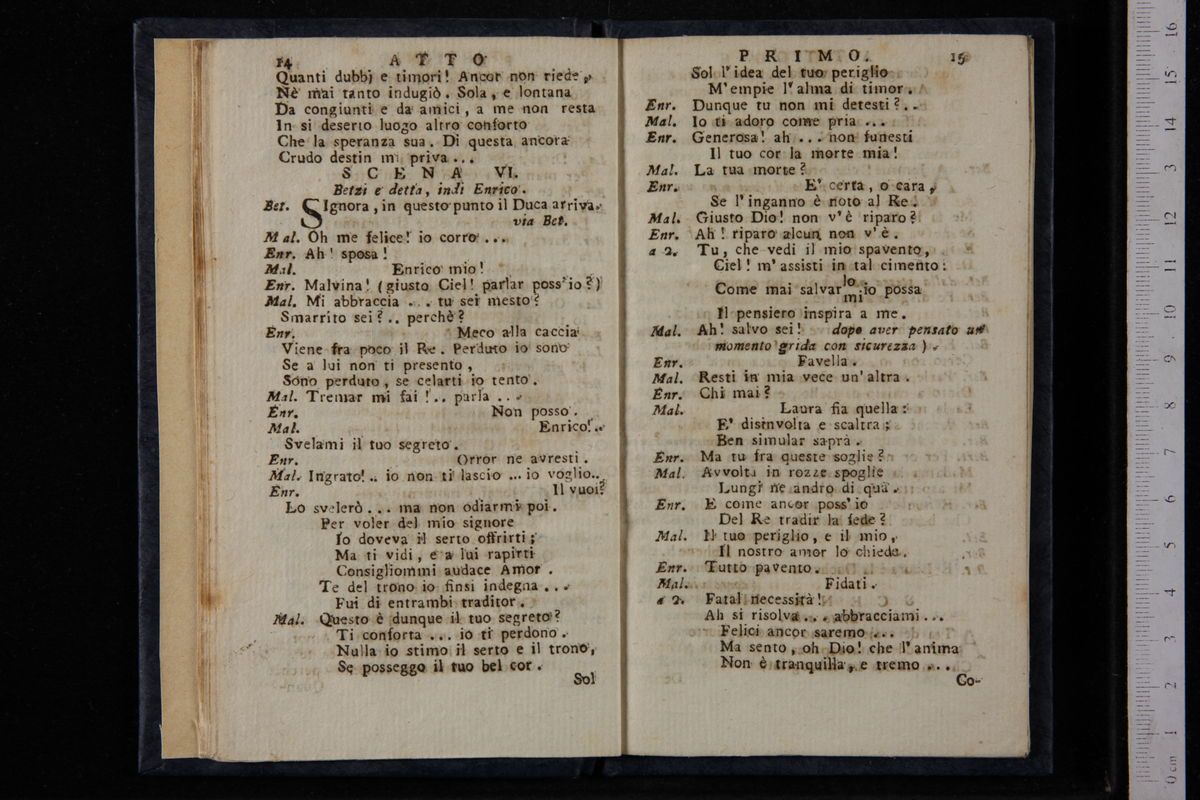 14 ATTO
Quanti dubbj e timori! Ancor non riede,
Nè mai tanto indugiò. Sola, e lontana
Da congiunti e da amici, a me non resta
In si deserto luogo altro conforto
Che la speranza sua. Di questa ancora
Crudo destin mi priva...
SCENA VI.
Betzi e detta, indi Enrico.
Bet. SIgnora, in questo punto il Duca arriva.
via Bet.
Mal. Oh me felice! io corro...
Enr. Ah! sposa!
Mal. Enrico mio!
Enr. Malvina! (giusto Ciel! parlar poss'io?)
Mal. Mi abbraccia... tu sei mesto?
Smarrito sei?.. perchè?
Enr. Meco alla caccia
Viene fra poco il Re. Perduto io sono
Se a lui non ti presento,
Sono perduto, se celarti io tento.
Mal. Tremar mi fai!.. parla...
Enr. Non posso.
Mal. Enrico!..
Svelami il tuo segreto.
Enr. Orror ne avresti.
Mal. Ingrato!.. io non ti lascio... io voglio..
Enr. Il vuoi?
Lo svelerò... ma non odiarmi poi.
Per voler del mio signore
Io doveva il serto offrirti;
Ma ti vidi, e a lui rapirti
Consigliommi audace Amor.
Te del trono io finsi indegna...
Fui di entrambi traditor.
Mal. Questo è dunque il tuo segreto?
Ti conforta... io ti perdono.
Nulla io stimo il serto e il trono,
Se posseggo il tuo bel cor.
Sol
PRIMO. 15
Sol l'idea del tuo periglio
M'empie l'alma di timor.
Enr. Dunque tu non mi detesti?..
Mal. Io ti adoro come pria...
Enr. Generosa! ah... non funesti
Il tuo cor la morte mia!
Mal. La tua morte?
Enr. E' certa, o cara,
Se l'inganno è noto al Re.
Mal. Giusto Dio! non v'è riparo?
Enr. Ah! riparo alcun non v'è.
a 2. Tu, che vedi il mio spavento,
Ciel! m'assisti in tal cimento:
Come mai salvar lo mi io possa
Il pensiero inspira a me.
Mal. Ah! salvo sei! dopo aver pensato un
momento grida con sicurezza).
Enr. Favella.
Mal. Resti in mia vece un'altra.
Enr. Chi mai?
Mal. Laura fia quella:
E' disinvolta e scaltra;
Ben simular saprà.
Enr. Ma tu fra queste soglie?
Mal. Avvolta in rozze spoglie
Lungi ne andro di quà.
Enr. E come ancor poss'io
Del Re tradir la fede?
Mal. Il tuo periglio, e il mio,
Il nostro amor lo chiede.
Enr. Tutto pavento.
Mal. Fidati.
a 2. Fatal necessità!
Ah si risolva... abbracciami...
Felici ancor saremo...
Ma sento, oh Dio! che l'anima
Non è tranquilla, e tremo...
Co-
0 cm 1 2 3 4 5 6 7 8 9 10 11 12 13 14 15 16